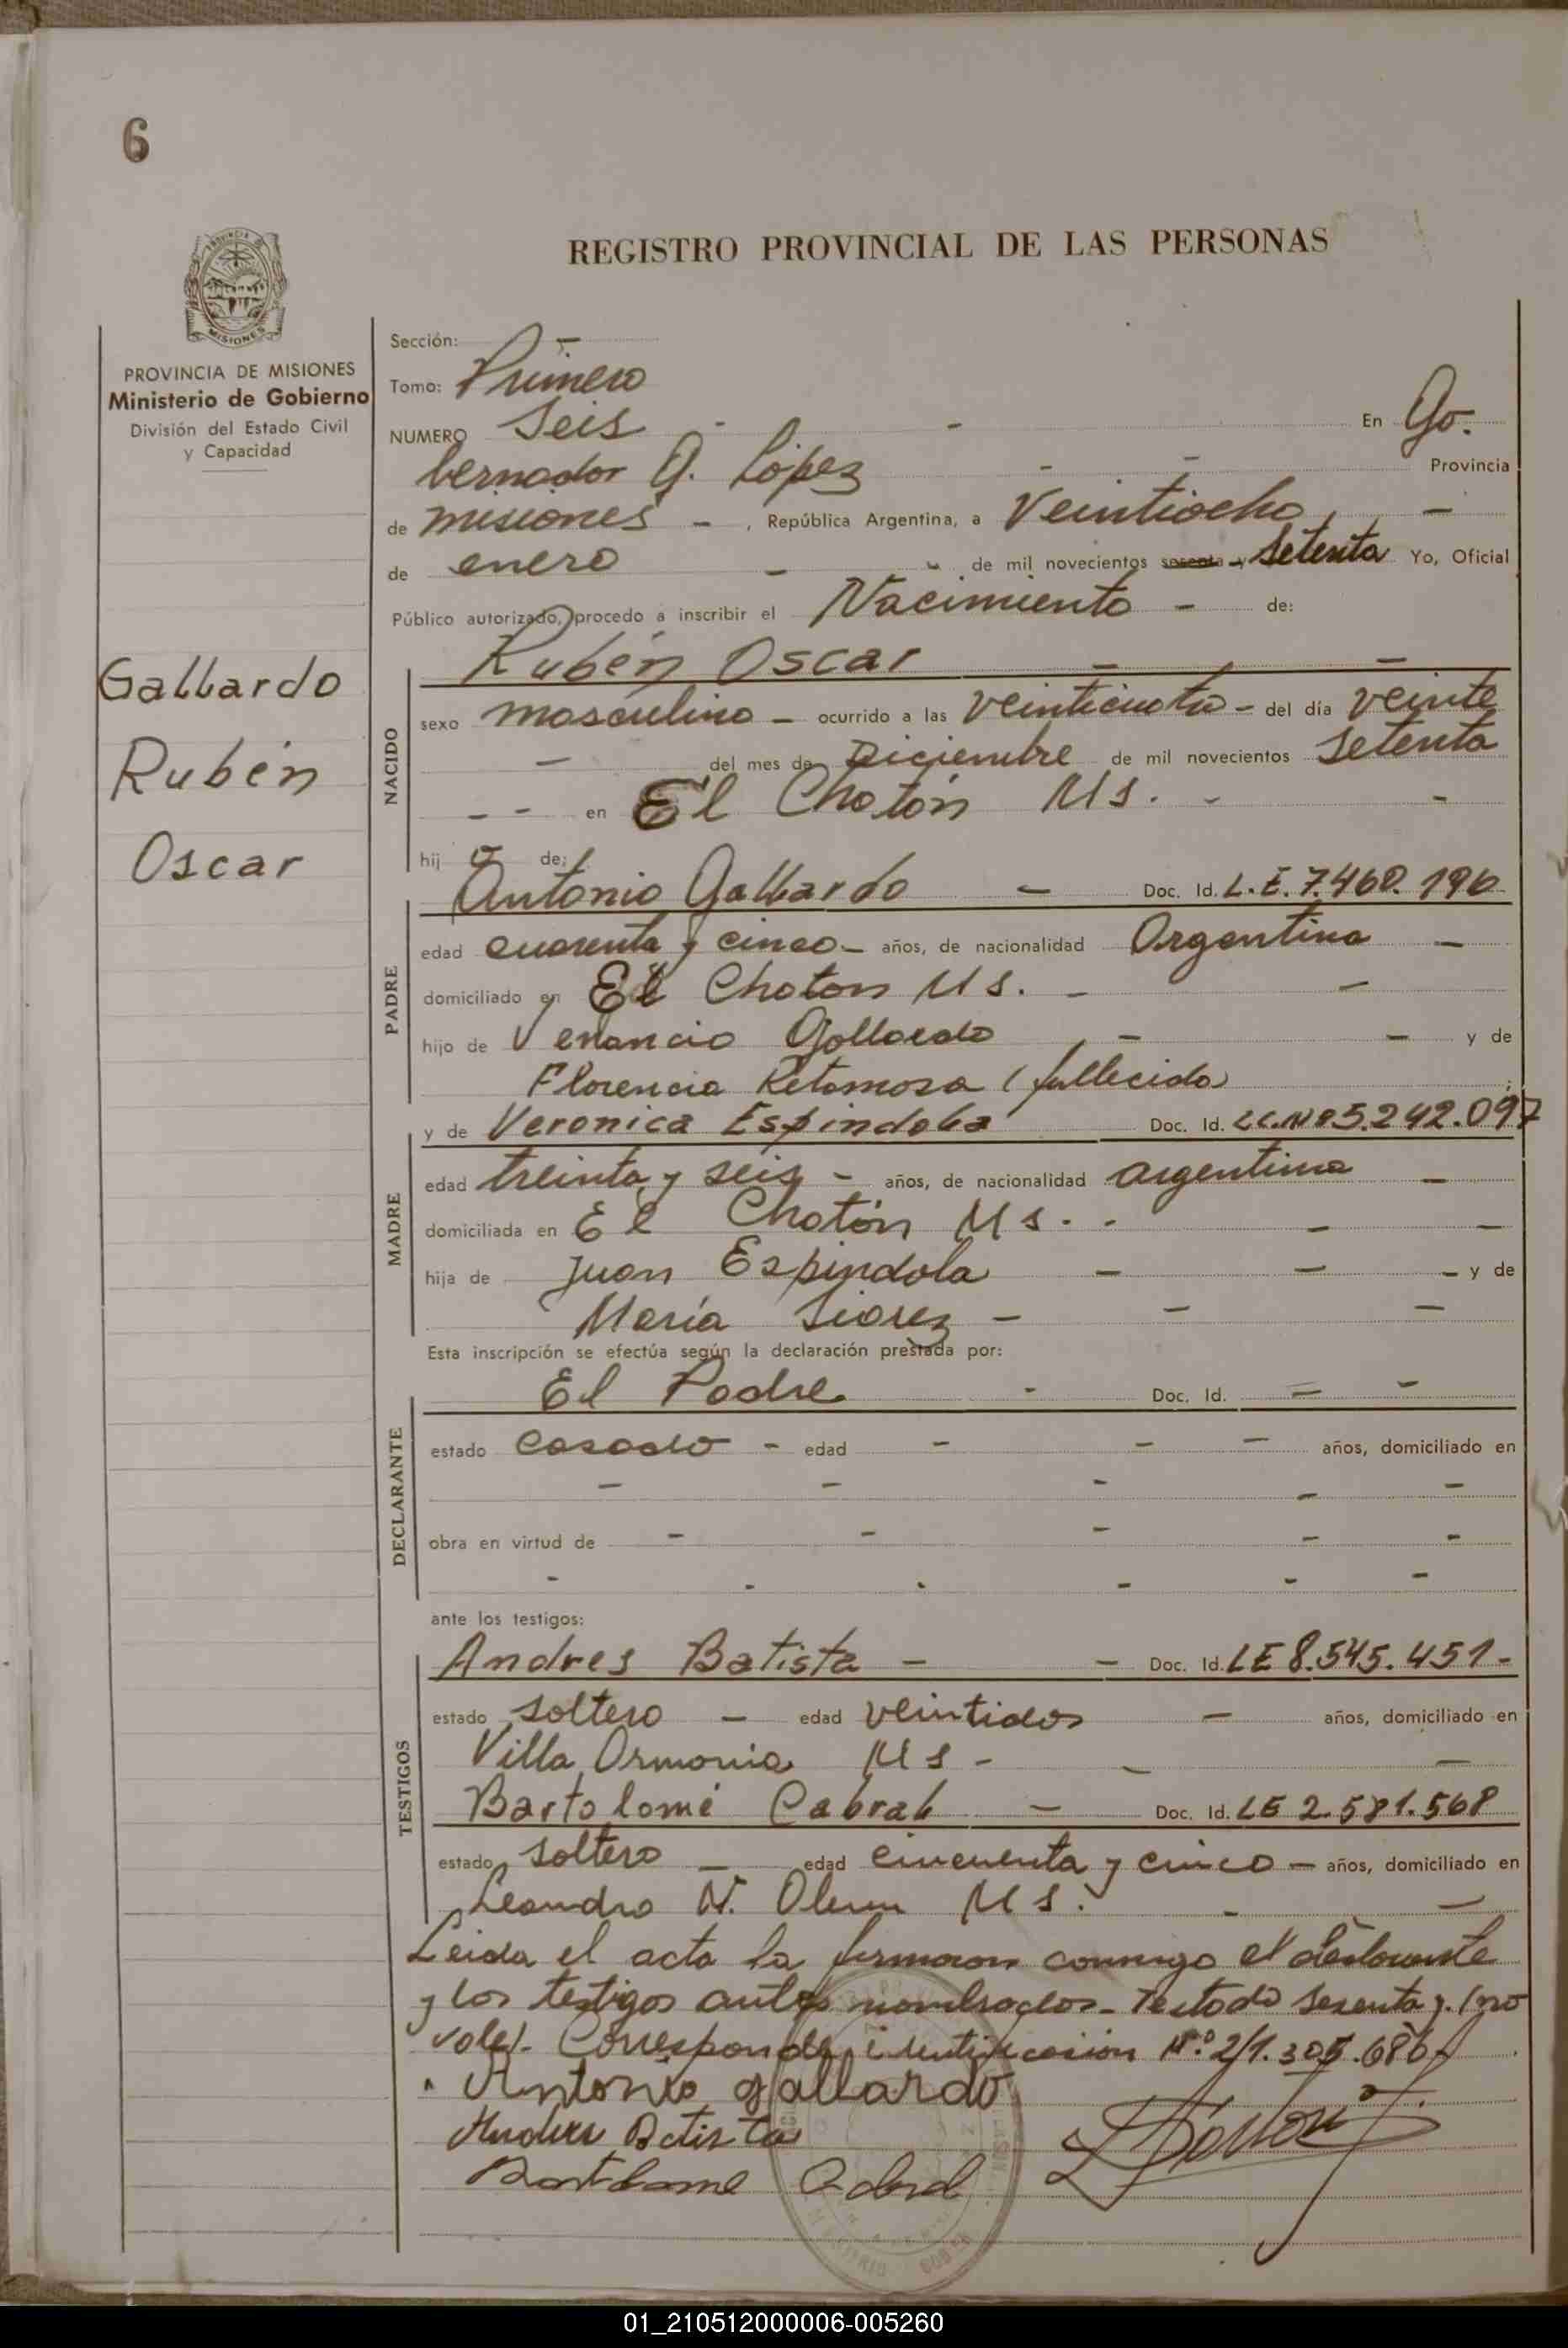 6
REGISTRO PROVINCIAL DE LAS PERSONAS
MISIONES
PROVINCIA DE MISIONES
Ministerio de Gobierno
División del Estado Civil
y Capacidad
Gallardo
Rubén
Oscar
Sección: -
Tomo: Primero
NUMERO Seis - - En Go.
bernador G. López - - Provincia
de misiones - , República Argentina, a Veintiocho, -
de enero - - de mil novecientos sesenta y setenta Yo, Oficial
Público autorizado, procedo a inscribir el Nacimiento - de:
Rubén Oscar - -
NACIDO
sexo masculino - ocurrido a las veinticuatro - del día veinte
- del mes de Diciembre de mil novecientos setenta
- - en El Chatón Ms. - -
hij o de:
Antonio Gallardo - Doc. Id. L.E. 7.460.196
PADRE
edad cuarenta y cinco - años, de nacionalidad Argentina -
domiciliado en El Chaton Ms. - -
hijo de Venancio Gallardo - - y de
Florencia Retamosa (fallecida)
y de Veronica Espindola Doc. Id. LC.Nº 5.242.097
MADRE
edad treinta y seis - años, de nacionalidad argentina -
domiciliada en El Chatón Ms. - - -
hija de Juan Espindola - - - y de
María - - -
Esta inscripción se efectúa según la declaración prestada por:
El Padre - Doc. Id. - -
DECLARANTE
estado Casado - edad - - - años, domiciliado en
- - - - -
obra en virtud de - - - - -
- - - - - -
ante los testigos:
Andres Batista - - Doc. Id. LE 8.545.451-
TESTIGOS
estado soltero - edad veintidos - años, domiciliado en
Villa Armonia Ms - - -
Bartolomé Cabral - Doc. Id. LE 2.581.568
estado soltero - edad cincuenta y cinco - años, domiciliado en
Leandro N. Alem Ms. - -
Leida el acta la firmaron conmigo el declarante
y los testigos antes nombrados - Testado sesenta y. (no
vale). Corresponde identificación Nº 21.305.686
Antonio gallardo
Andres Batista
Bartolome Cabral
01_210512000006-005260